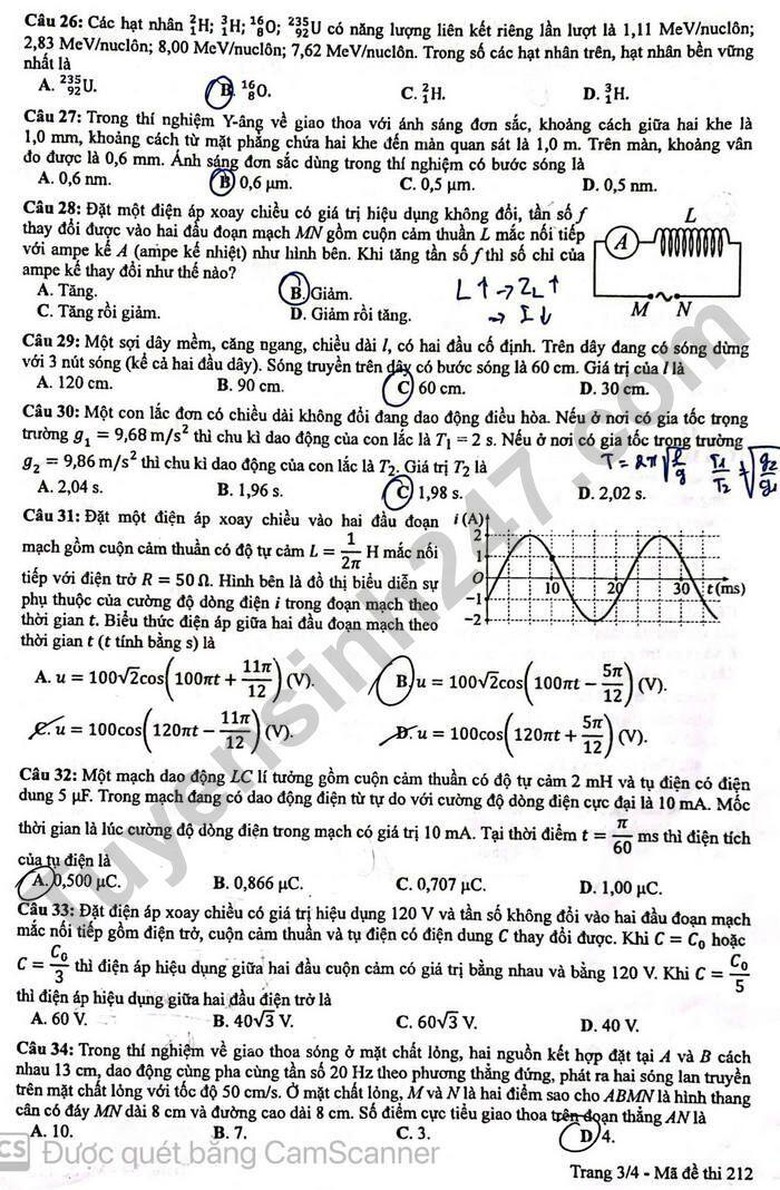 Câu 26: Các hạt nhân ²₁H; ³₁H; ¹⁶₈O; ²³⁵₉₂U có năng lượng liên kết riêng lần lượt là 1,11 MeV/nuclôn;
2,83 MeV/nuclôn; 8,00 MeV/nuclôn; 7,62 MeV/nuclôn. Trong số các hạt nhân trên, hạt nhân bền vững
nhất là
A. ²³⁵₉₂U. B. ¹⁶₈O. C. ²₁H. D. ³₁H.
Câu 27: Trong thí nghiệm Y-âng về giao thoa với ánh sáng đơn sắc, khoảng cách giữa hai khe là
1,0 mm, khoảng cách từ mặt phẳng chứa hai khe đến màn quan sát là 1,0 m. Trên màn, khoảng vân
đo được là 0,6 mm. Ánh sáng đơn sắc dùng trong thí nghiệm có bước sóng là
A. 0,6 nm. B. 0,6 μm. C. 0,5 μm. D. 0,5 nm.
Câu 28: Đặt một điện áp xoay chiều có giá trị hiệu dụng không đổi, tần số f
thay đổi được vào hai đầu đoạn mạch MN gồm cuộn cảm thuần L mắc nối tiếp
với ampe kế A (ampe kế nhiệt) như hình bên. Khi tăng tần số f thì số chỉ của
ampe kế thay đổi như thế nào?
A. Tăng. B. Giảm.
C. Tăng rồi giảm. D. Giảm rồi tăng.
L↑ → Z_L↑
→ I↓
L
A
M N
Câu 29: Một sợi dây mềm, căng ngang, chiều dài l, có hai đầu cố định. Trên dây đang có sóng dừng
với 3 nút sóng (kể cả hai đầu dây). Sóng truyền trên dây có bước sóng là 60 cm. Giá trị của l là
A. 120 cm. B. 90 cm. C. 60 cm. D. 30 cm.
Câu 30: Một con lắc đơn có chiều dài không đổi đang dao động điều hòa. Nếu ở nơi có gia tốc trọng
trường g₁ = 9,68 m/s² thì chu kì dao động của con lắc là T₁ = 2 s. Nếu ở nơi có gia tốc trọng trường
g₂ = 9,86 m/s² thì chu kì dao động của con lắc là T₂. Giá trị T₂ là
T = 2π√(l/g) T₁/T₂ = √(g₂/g₁)
A. 2,04 s. B. 1,96 s. C. 1,98 s. D. 2,02 s.
Câu 31: Đặt một điện áp xoay chiều vào hai đầu đoạn
mạch gồm cuộn cảm thuần có độ tự cảm L = 1/2π H mắc nối
tiếp với điện trở R = 50 Ω. Hình bên là đồ thị biểu diễn sự
phụ thuộc của cường độ dòng điện i trong đoạn mạch theo
thời gian t. Biểu thức điện áp giữa hai đầu đoạn mạch theo
thời gian t (t tính bằng s) là
i (A)
2
1
O 10 20 30 t (ms)
−1
−2
A. u = 100√2cos(100πt + 11π/12) (V). B. u = 100√2cos(100πt − 5π/12) (V).
C. u = 100cos(120πt − 11π/12) (V). D. u = 100cos(120πt + 5π/12) (V).
Câu 32: Một mạch dao động LC lí tưởng gồm cuộn cảm thuần có độ tự cảm 2 mH và tụ điện có điện
dung 5 μF. Trong mạch đang có dao động điện từ tự do với cường độ dòng điện cực đại là 10 mA. Mốc
thời gian là lúc cường độ dòng điện trong mạch có giá trị 10 mA. Tại thời điểm t = π/60 ms thì điện tích
của tụ điện là
A. 0,500 μC. B. 0,866 μC. C. 0,707 μC. D. 1,00 μC.
Câu 33: Đặt điện áp xoay chiều có giá trị hiệu dụng 120 V và tần số không đổi vào hai đầu đoạn mạch
mắc nối tiếp gồm điện trở, cuộn cảm thuần và tụ điện có điện dung C thay đổi được. Khi C = C₀ hoặc
C = C₀/3 thì điện áp hiệu dụng giữa hai đầu cuộn cảm có giá trị bằng nhau và bằng 120 V. Khi C = C₀/5
thì điện áp hiệu dụng giữa hai đầu điện trở là
A. 60 V. B. 40√3 V. C. 60√3 V. D. 40 V.
Câu 34: Trong thí nghiệm về giao thoa sóng ở mặt chất lỏng, hai nguồn kết hợp đặt tại A và B cách
nhau 13 cm, dao động cùng pha cùng tần số 20 Hz theo phương thẳng đứng, phát ra hai sóng lan truyền
trên mặt chất lỏng với tốc độ 50 cm/s. Ở mặt chất lỏng, M và N là hai điểm sao cho ABMN là hình thang
cân có đáy MN dài 8 cm và đường cao dài 8 cm. Số điểm cực tiểu giao thoa trên đoạn thẳng AN là
A. 10. B. 7. C. 3. D. 4.
CS Được quét bằng CamScanner
Trang 3/4 - Mã đề thi 212
Tuyensinh247.com